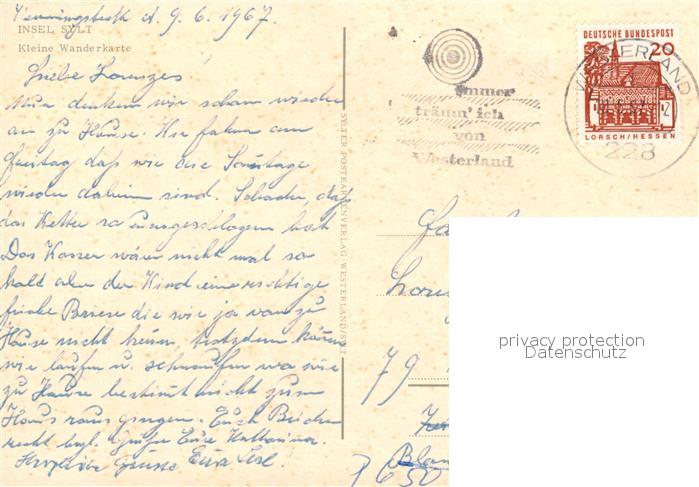 Wenningstedt d. 9.6.1967.
INSEL SYLT
Kleine Wanderkarte
Liebe Lorenzes!
Nun denken wir schon wieder
an zu Hause. Wir fahren am
Freitag daß wir die Sonntage
wieder daheim sind. Schade, daß
das Wetter so umgeschlagen hat
Das Wasser wäre nicht mal so
kalt aber der Wind eine richtige
frische Briese die wir ja von zu
Hause nicht kennen, trotzdem können
wir laufen u. schnaufen wo wir
zu Hause bestimmt nicht zum
Haus raus gingen. Euch Beiden
recht hzl. Grüße Eure Katharina.
Herzliche Grüsse Eura Lisl.
SYLTER POSTKARTENVERLAG · WESTERLAND/SYLT
Immer
träum' ich
von
Westerland
DEUTSCHE BUNDESPOST
20
LORSCH/HESSEN
WESTERLAND
228
79
privacy protection
Datenschutz